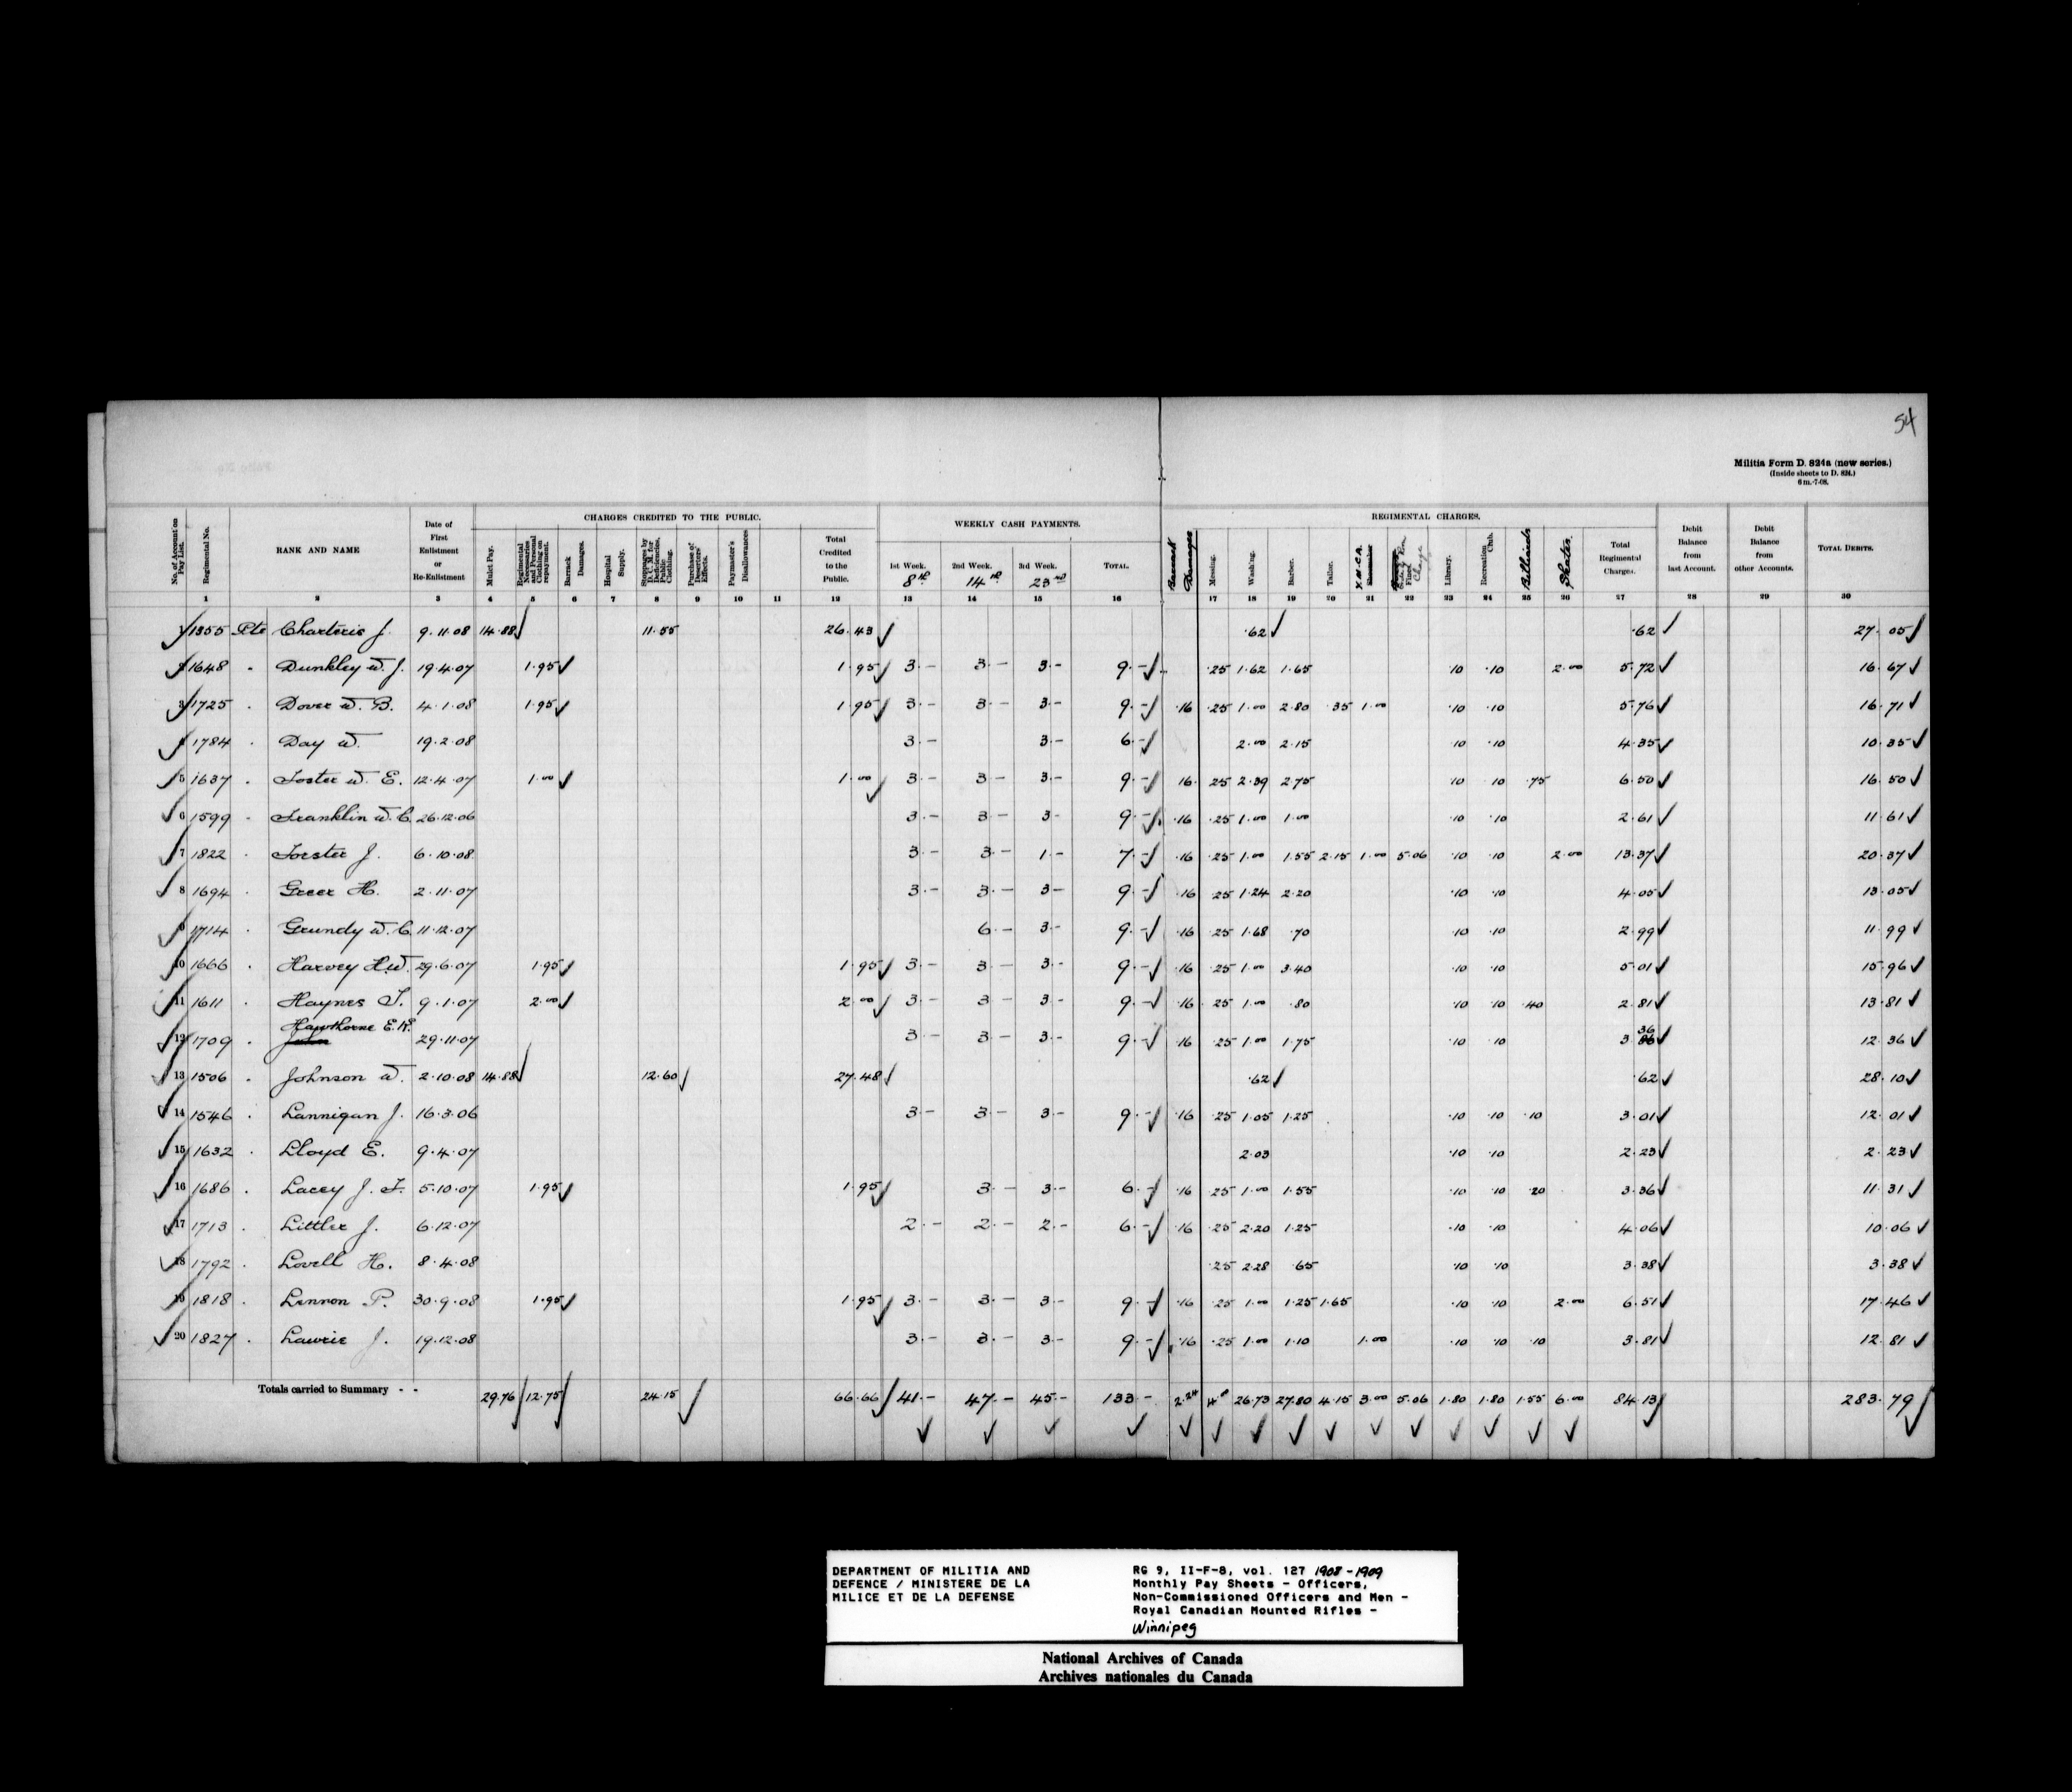 54
Militia Form D. 824a (new series.)
(Inside sheets to D. 824.)
6 m.-7-08.
CHARGES CREDITED TO THE PUBLIC. WEEKLY CASH PAYMENTS. REGIMENTAL CHARGES.
No. of Account on Pay List. Regimental No. RANK AND NAME Date of First Enlistment or Re-Enlistment Mulct Pay. Regimental Necessaries and Personal Clothing on repayment. Barrack Damages. Hospital Supply. Stoppages by D.C.M. for Deficiencies, Public Clothing. Purchase of Deserters' Effects. Paymaster's Disallowances Total Credited to the Public. 1st Week. 8th 2nd Week. 14th 3rd Week. 23rd TOTAL. Barrack Damages Messing. Wash'ng. Barber. Tailor. Y.M.C.A. Fixed Charge Library. Recreation Club. Billiards Skates Total Regimental Charges. Debit Balance from last Account. Debit Balance from other Accounts. TOTAL DEBITS.
1 2 3 4 5 6 7 8 9 10 11 12 13 14 15 16 17 18 19 20 21 22 23 24 25 26 27 28 29 30
1 1355 Pte Charteris J. 9.11.08 14.88 11.55 26.43 .62 .62 27.05
2 1648 " Dunkley W. J. 19.4.07 1.95 1.95 3.- 3.- 3.- 9.- .25 1.62 1.65 .10 .10 2.00 5.72 16.67
3 1725 . Dover W. B. 4.1.08 1.95 1.95 3.- 3.- 3.- 9.- .16 .25 1.00 2.80 .35 1.00 .10 .10 5.76 16.71
4 1784 . Day W. 19.2.08 3.- 3.- 6.- 2.00 2.15 .10 .10 4.35 10.35
5 1637 . Foster W. E. 12.4.07 1.00 1.00 3.- 3- 3.- 9.- 16. .25 2.39 2.75 .10 .10 .75 6.50 16.50
6 1599 . Franklin W. C. 26.12.06 3.- 3- 3- 9.- .16 .25 1.00 1.00 .10 .10 2.61 11.61
7 1822 . Forster J. 6.10.08 3.- 3.- 1.- 7.- .16 .25 1.00 1.55 2.15 1.00 5.06 .10 .10 2.00 13.37 20.37
8 1694 . Greer H. 2.11.07 3.- 3.- 3- 9.- .16 .25 1.24 2.20 .10 .10 4.05 13.05
9 1714 . Grundy W. C. 11.12.07 6.- 3.- 9.- .16 .25 1.68 .70 .10 .10 2.99 11.99
10 1666 . Harvey H.W. 29.6.07 1.95 1.95 3.- 3.- 3.- 9.- .16 .25 1.00 3.40 .10 .10 5.01 15.96
11 1611 . Haynes T. 9.1.07 2.00 2.00 3.- 3.- 3.- 9.- .16 .25 1.00 .80 .10 .10 .40 2.81 13.81
Hawthorne E.R. 36
12 1709 . John 29.11.07 3.- 3.- 3.- 9.- .16 .25 1.00 1.75 .10 .10 3. 12.36
13 1506 . Johnson W. 2.10.08 14.88 12.60 27.48 .62 .62 28.10
14 1546 . Lannigan J. 16.3.06 3.- 3.- 3.- 9.- .16 .25 1.05 1.25 .10 .10 .10 3.01 12.01
15 1632 . Lloyd E. 9.4.07 2.03 .10 .10 2.23 2.23
16 1686 . Lacey J. F. 5.10.07 1.95 1.95 3.- 3.- 6.- .16 .25 1.00 1.55 .10 .10 .20 3.36 11.31
17 1713 . Littler J. 6.12.07 2.- 2.- 2.- 6.- .16 .25 2.20 1.25 .10 .10 4.06 10.06
18 1792 . Lovell H. 8.4.08 .25 2.28 .65 .10 .10 3.38 3.38
19 1818 . Lennon P. 30.9.08 1.95 1.95 3.- 3.- 3.- 9.- .16 .25 1.00 1.25 1.65 .10 .10 2.00 6.51 17.46
20 1827 . Lawrie J. 19.12.08 3.- 3.- 3.- 9.- .16 .25 1.00 1.10 1.00 .10 .10 .10 3.81 12.81
Totals carried to Summary - - 29.76 12.75 24.15 66.66 41.- 47.- 45.- 133.- 2.24 4.00 26.73 27.80 4.15 3.00 5.06 1.80 1.80 1.55 6.00 84.13 283.79
DEPARTMENT OF MILITIA AND
DEFENCE / MINISTERE DE LA
MILICE ET DE LA DEFENSE
RG 9, II-F-8, vol. 127 1908-1909
Monthly Pay Sheets - Officers,
Non-Commissioned Officers and Men -
Royal Canadian Mounted Rifles -
Winnipeg
National Archives of Canada
Archives nationales du Canada